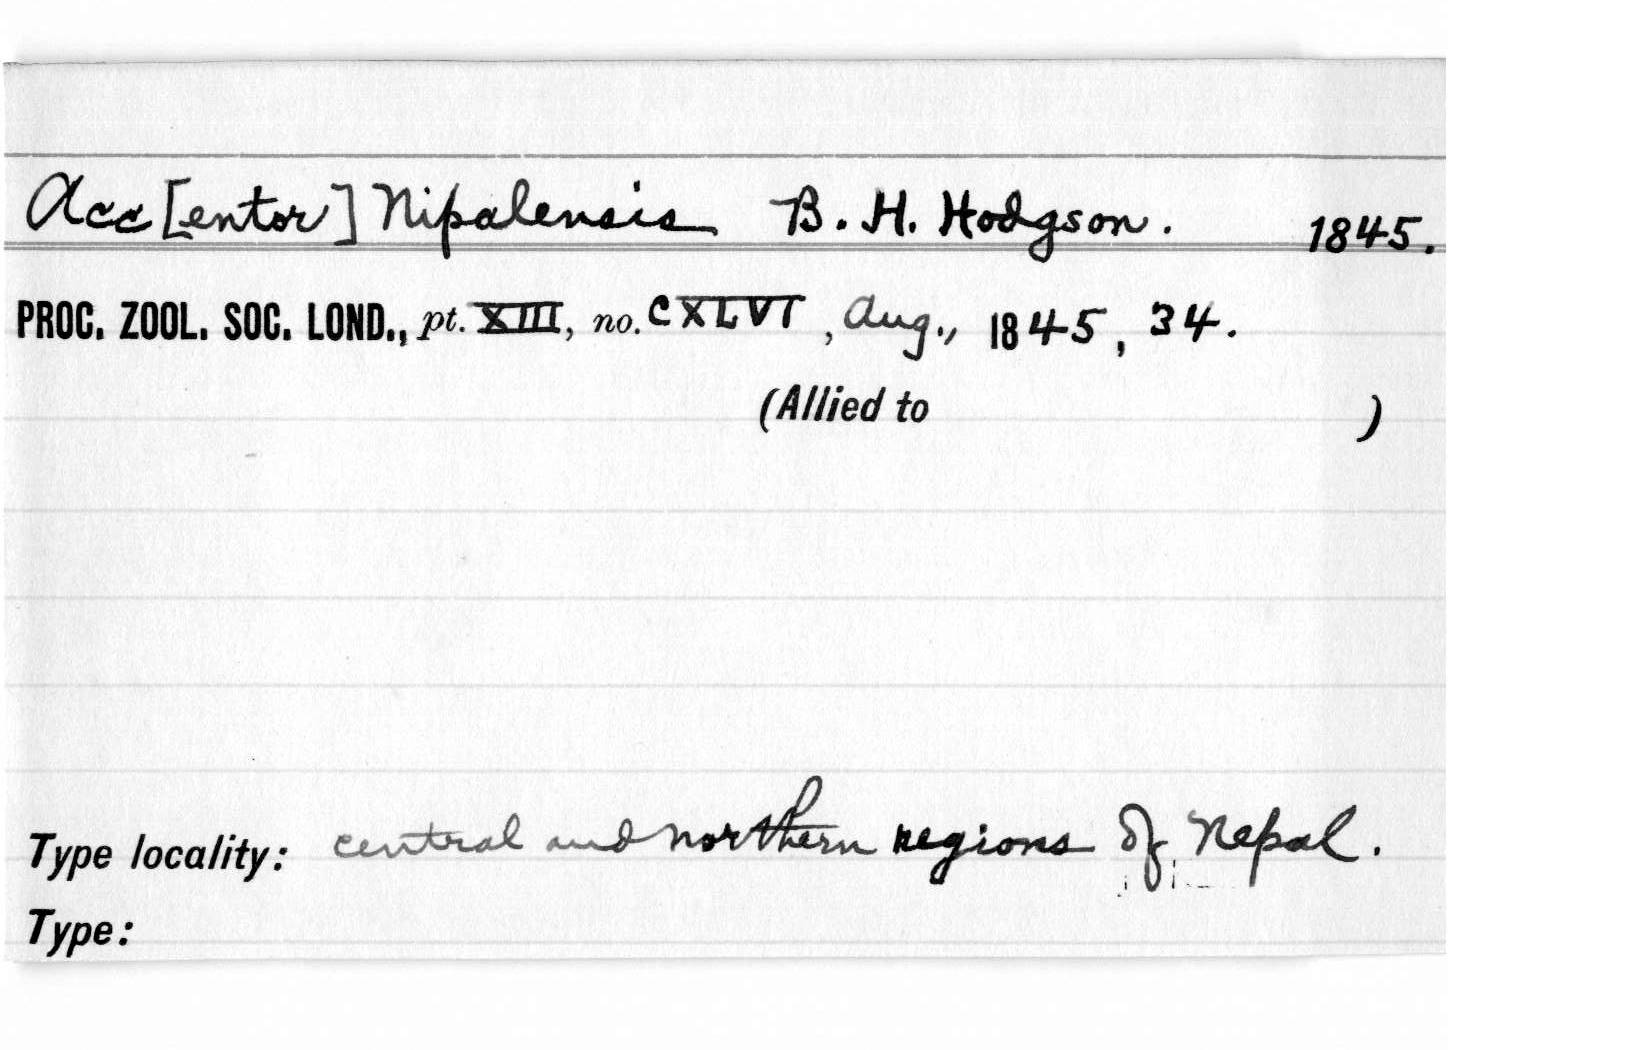 Acc[entor] Nipalensis B. H. Hodgson. 1845.
PROC. ZOOL. SOC. LOND., pt. XIII, no. CXLVI, Aug., 1845, 34.
(Allied to )
Type locality: central and northern regions of Nepal.
Type: